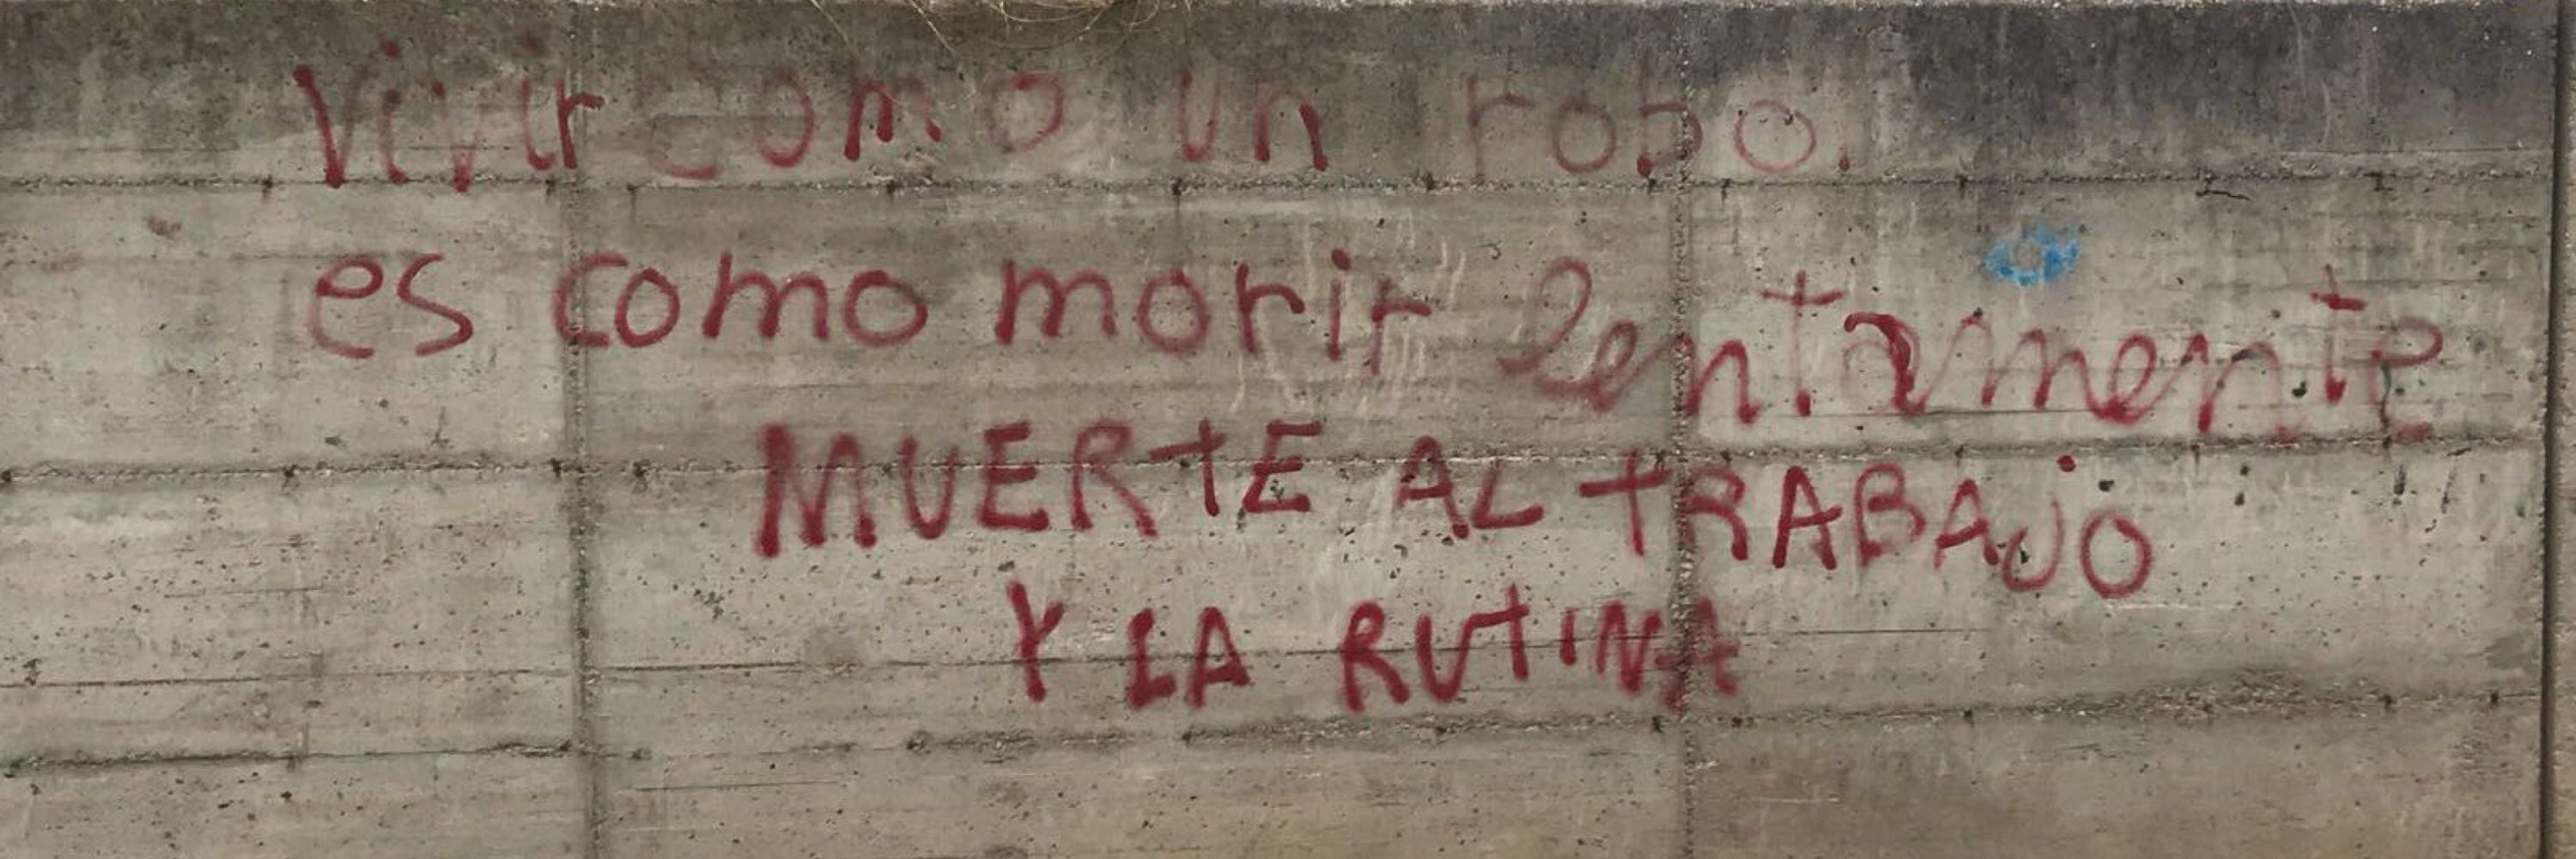 Vivir como un robo.
es como morir lentamente
MUERTE AL TRABAJO
Y LA RUTINA